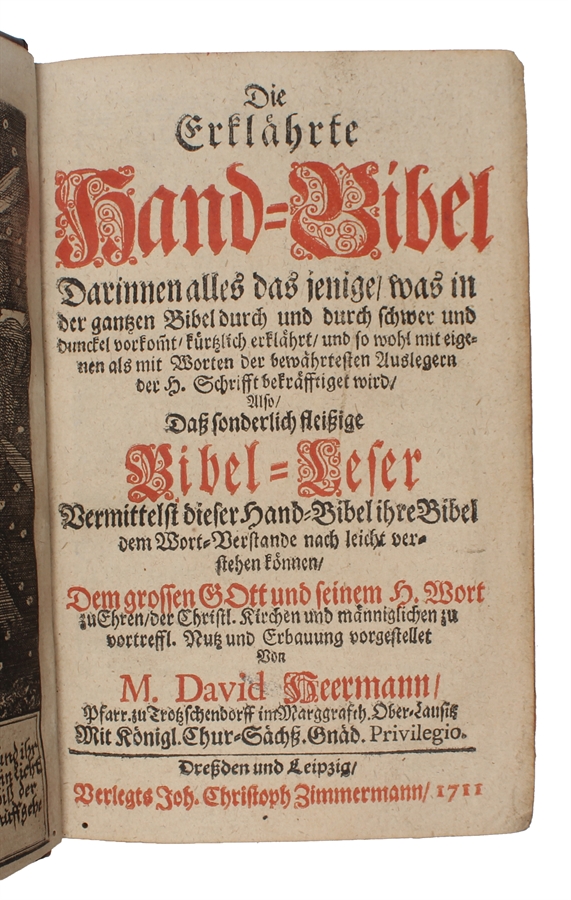 Die
Erklährte
Hand-Bibel
Darinnen alles das jenige/ was in
der gantzen Bibel durch und durch schwer und
dunckel vorkom̃t/ kürtzlich erklährt/ und so wohl mit eige-
nen als mit Worten der bewährtesten Auslegern
der H. Schrifft bekräfftiget wird/
Also/
Daß sonderlich fleißige
Bibel-Leser
Vermittelst dieser Hand-Bibel ihre Bibel
dem Wort-Verstande nach leicht ver-
stehen können/
Dem grossen GOtt und seinem H. Wort
zu Ehren/ der Christl. Kirchen und männiglichen zu
vortreffl. Nutz und Erbauung vorgestellet
Von
M. David Heermann/
Pfarr. zu Trotzschendorff im Marggrafth. Ober-Lausitz
Mit Königl. Chur-Sächß. Gnäd. Privilegio.
Dreßden und Leipzig/
Verlegts Joh. Christoph Zimmermann/ 1711
und ihr
licht
der